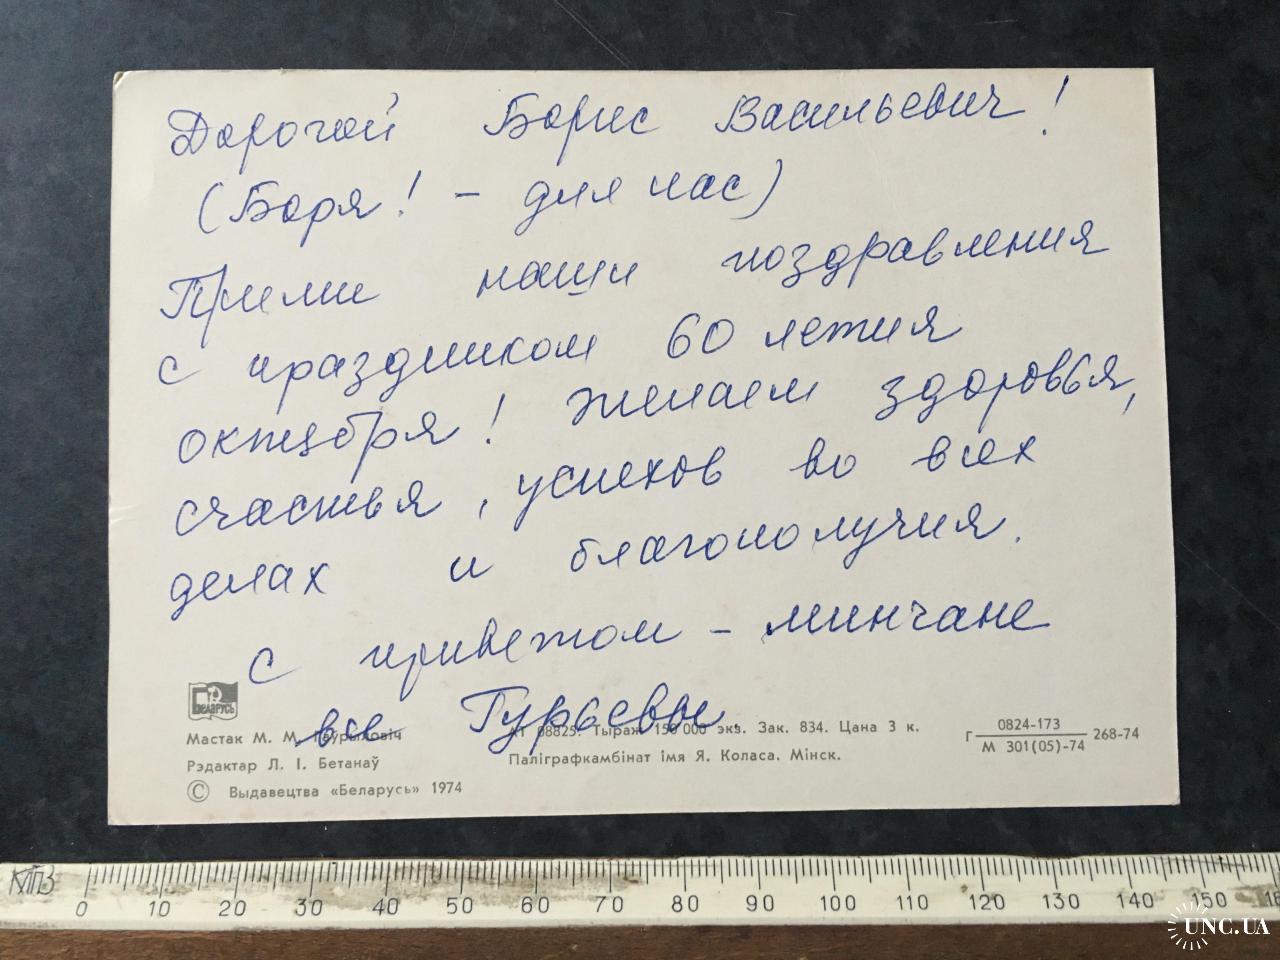 Дорогой Борис Васильевич!
(Боря! – для нас)
Прими наши поздравления
с праздником 60 летия
октября! Желаем здоровья,
счастья, успехов во всех
делах и благополучия.
С приветом – минчане
все Гурьевы.
Беларусь
Мастак М. М. Гаўрыловіч
Рэдактар Л. І. Бетанаў
© Выдавецтва «Беларусь» 1974
АТ 08825. Тыраж 150 000 экз. Зак. 834. Цана 3 к.
Паліграфкамбінат імя Я. Коласа. Мінск.
Г 0824-173 / М 301(05)-74 268-74
КПЗ
0 10 20 30 40 50 60 70 80 90 100 110 120 130 140 150
UNC.UA